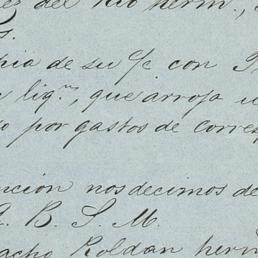 del Rio herm.,
s.
pia de su %c con
liq.nes, que arroja u
o por gastos de corres
ncion nos decimos de
Q. B. S. M.
acho Roldan herm